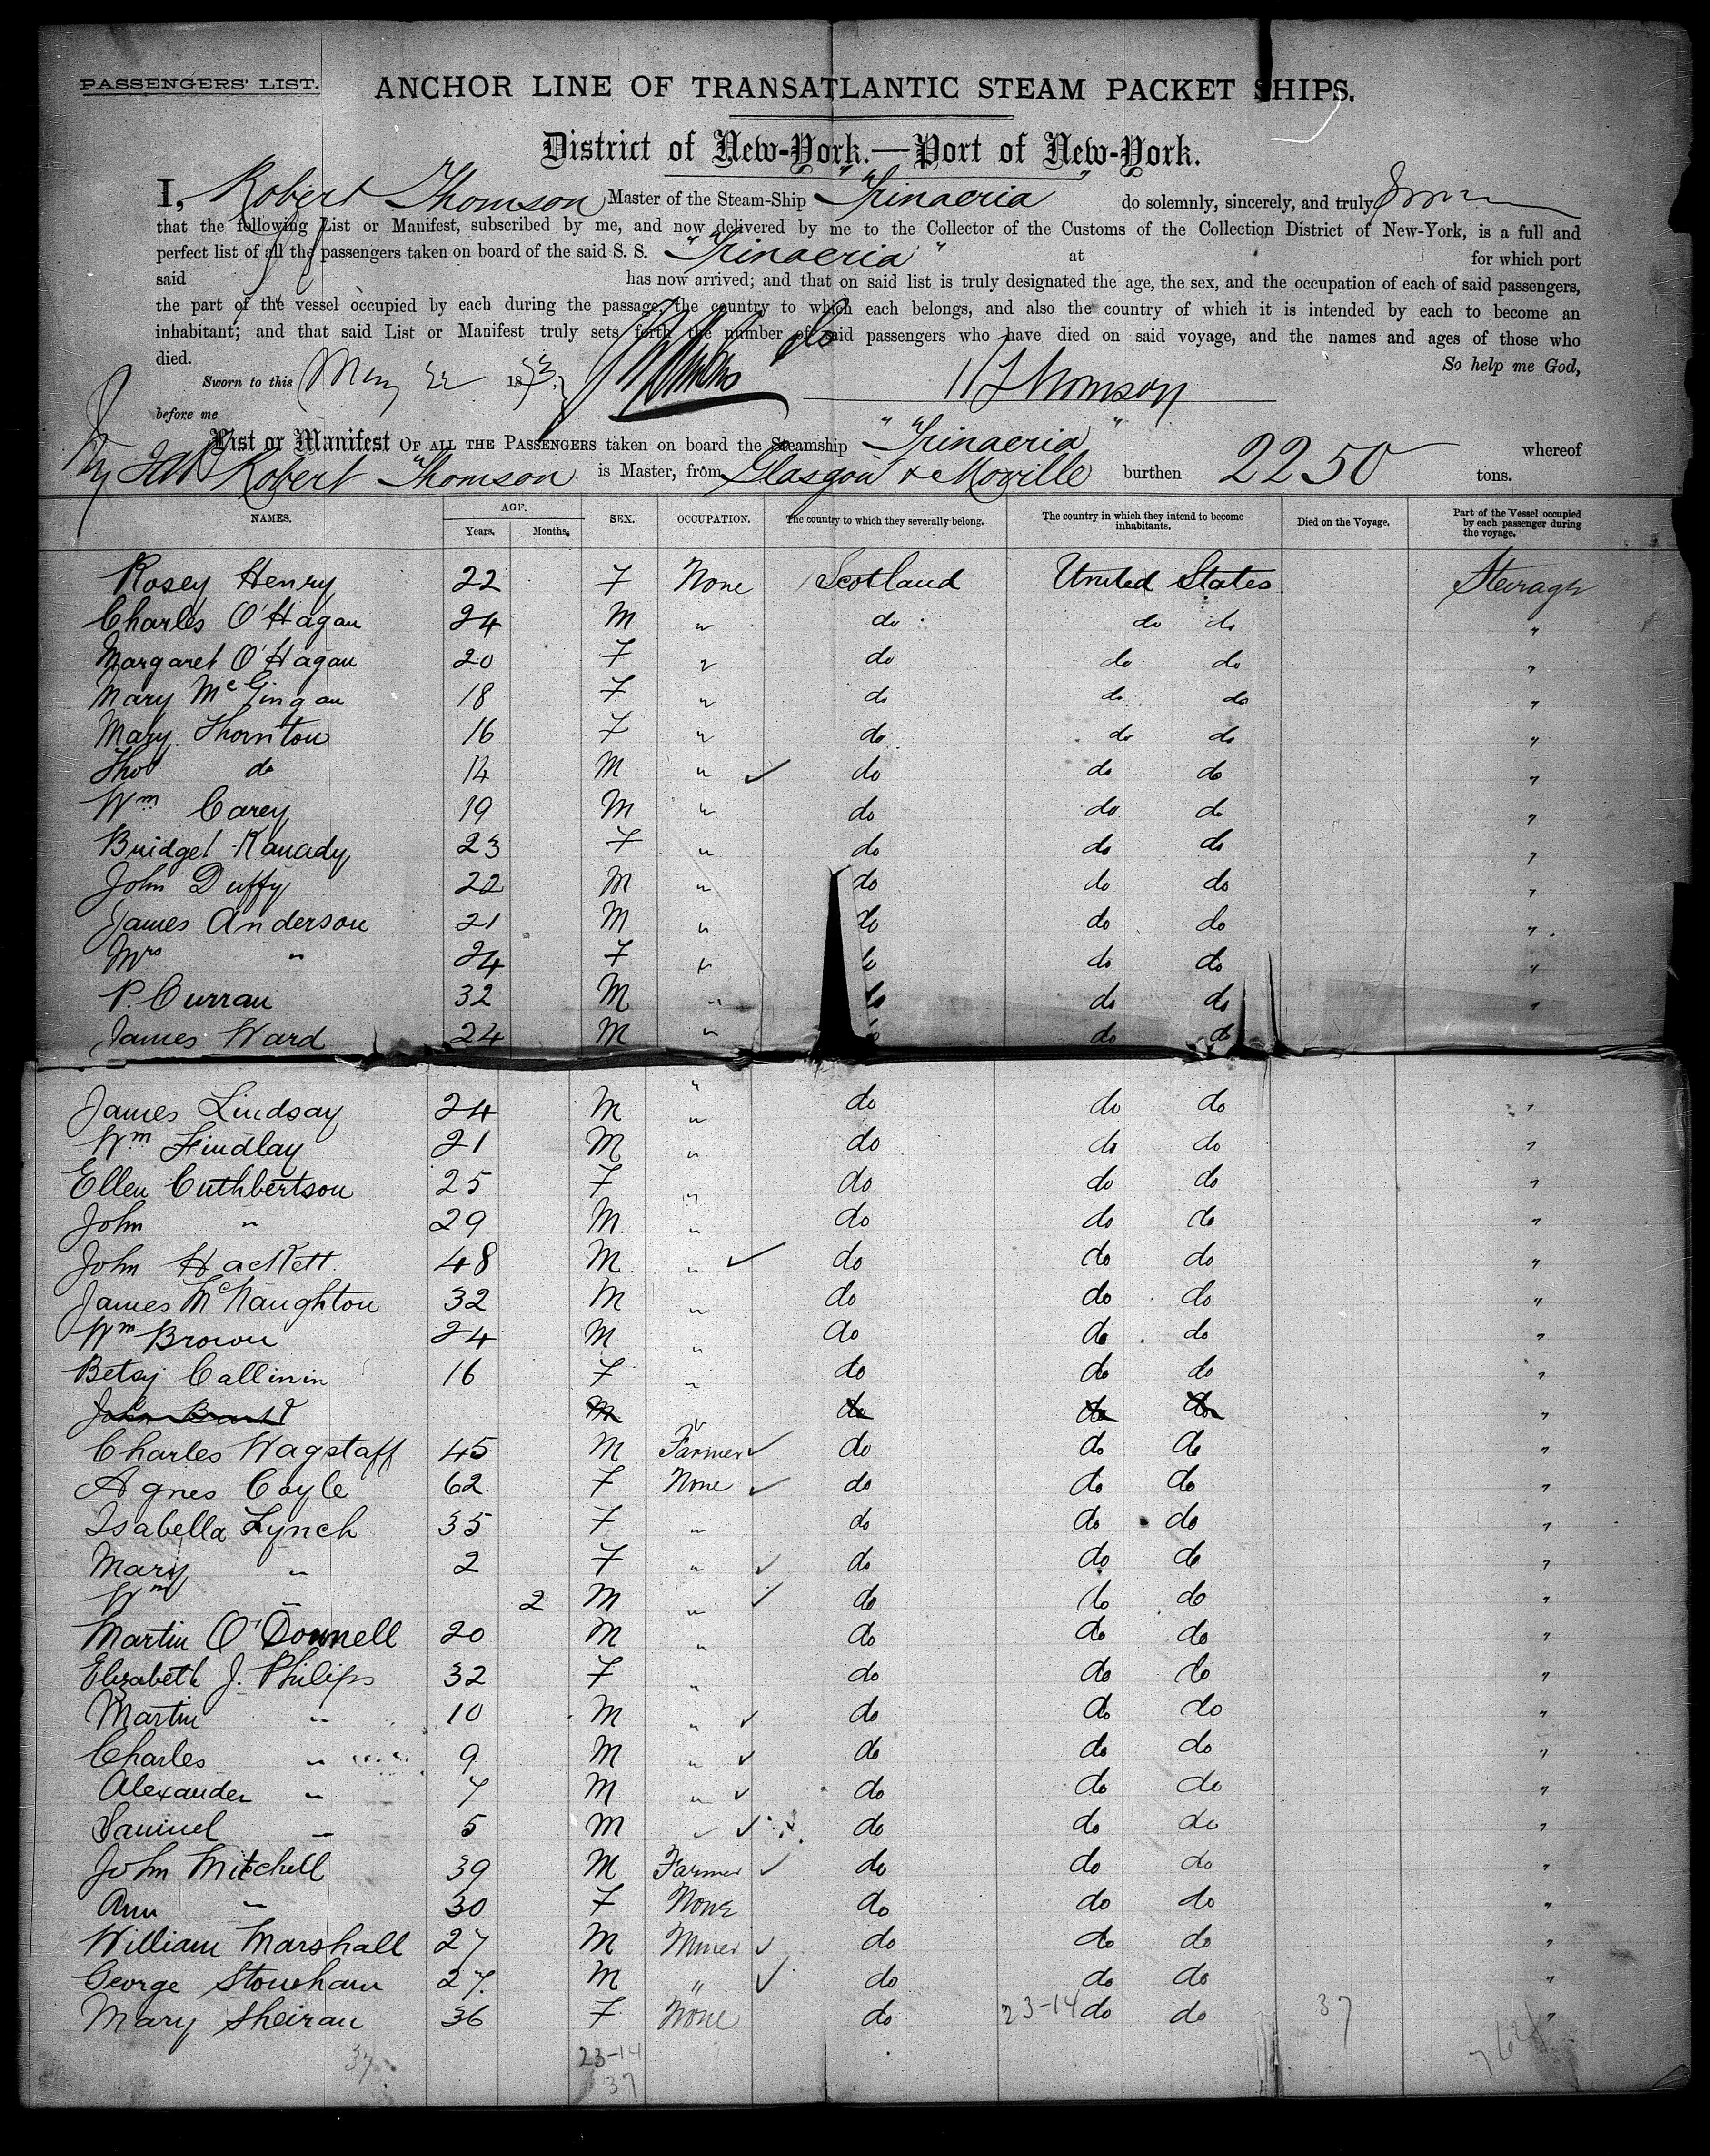 PASSENGERS' LIST.
ANCHOR LINE OF TRANSATLANTIC STEAM PACKET SHIPS.
District of New-York.—Port of New-York.
I, Robert Thomson Master of the Steam-Ship "Trinacria" do solemnly, sincerely, and truly
that the following List or Manifest, subscribed by me, and now delivered by me to the Collector of the Customs of the Collection District of New-York, is a full and
perfect list of all the passengers taken on board of the said S. S. "Trinacria" at for which port
said has now arrived; and that on said list is truly designated the age, the sex, and the occupation of each of said passengers,
the part of the vessel occupied by each during the passage, the country to which each belongs, and also the country of which it is intended by each to become an
inhabitant; and that said List or Manifest truly sets forth the number of said passengers who have died on said voyage, and the names and ages of those who
died. So help me God,
Sworn to this May 22 1883. Thomson
before me
List or Manifest OF ALL THE PASSENGERS taken on board the Steamship "Trinacria" whereof
Robert Thomson is Master, from Glasgow & Moville burthen 2250 tons.
NAMES. AGE. Years. Months. SEX. OCCUPATION. The country to which they severally belong. The country in which they intend to become inhabitants. Died on the Voyage. Part of the Vessel occupied by each passenger during the voyage.
Rosey Henry 22 F None Scotland United States Steerage
Charles O'Hagan 24 M " do do do "
Margaret O'Hagan 20 F " do do do "
Mary McGingan 18 F " do do do "
Mary Thornton 16 F " do do do "
Thos do 14 M " ✓ do do do "
Wm Carey 19 M " do do do "
Bridget Kanady 23 F " do do do "
John Duffy 22 M " do do do "
James Anderson 21 M " do do do "
Mrs " 24 F " do do do "
P. Curran 32 M " do do do "
James Ward 24 M " do do "
James Lindsay 24 M " do do do "
Wm Findlay 21 M " do do do "
Ellen Cuthbertson 25 F " do do do "
John " 29 M " do do do "
John Hackett 48 M " ✓ do do do "
James McNaughton 32 M " do do do "
Wm Brown 24 M " do do do "
Betsy Callinin 16 F " do do do "
John M " do do do "
Charles Wagstaff 45 M Farmer ✓ do do do "
Agnes Coyle 62 F None ✓ do do do "
Isabella Lynch 35 F " do do do "
Mary " 2 F " ✓ do do do "
Wm " 2 M " ✓ do do do "
Martin O'Donnell 20 M " do do do "
Elizabeth J. Philips 32 F " do do do "
Martin " 10 M " ✓ do do do "
Charles " 9 M " ✓ do do do "
Alexander " 7 M " ✓ do do do "
Samuel " 5 M " ✓ do do do "
John Mitchell 39 M Farmer ✓ do do do "
Ann " 30 F None do do do "
William Marshall 27 M Miner ✓ do do do "
George Stoneham 27 M " ✓ do do do "
Mary Sheiran 36 F None do 23-14 do do 37 "
37 23-14
37